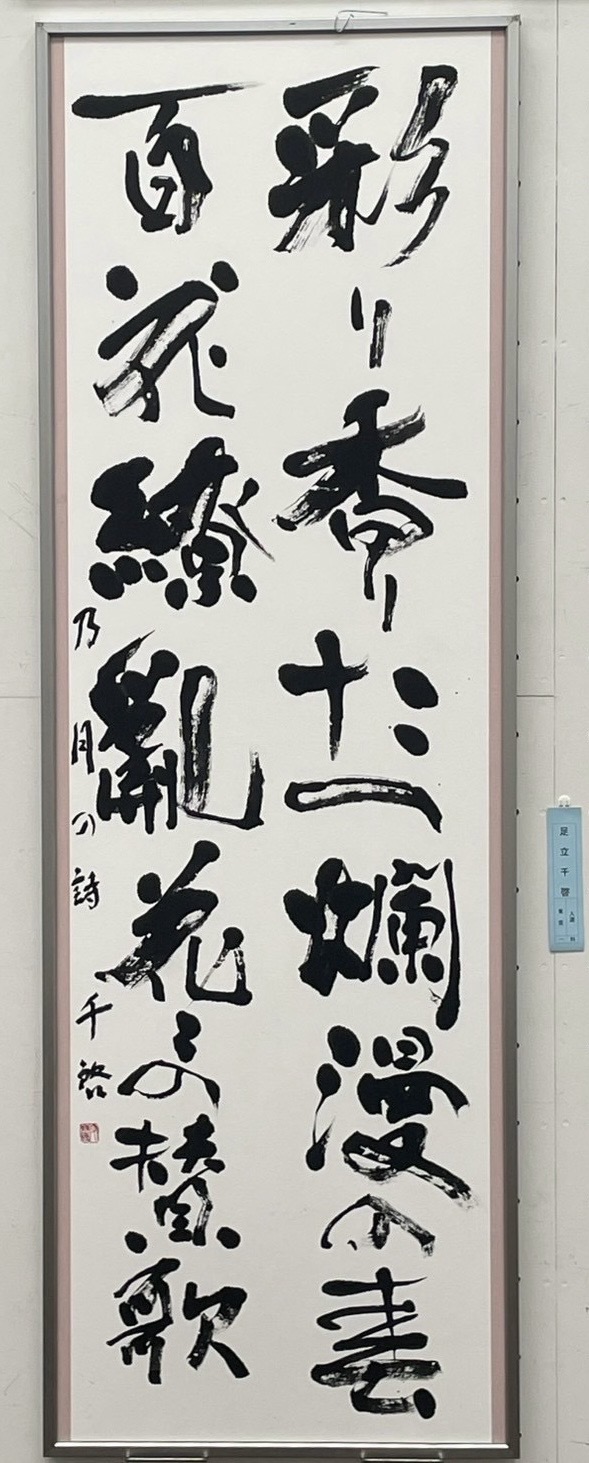 彩り香りたつ爛漫の春
百花繚亂花々の賛歌
乃月の詩 千啓
足立千啓